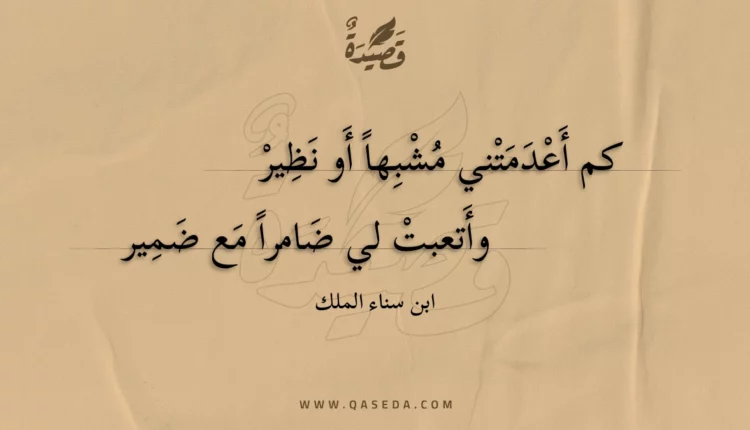 قَصِيدَةٌ
كم أَعْدَمَتْني مُشْبِهاً أَو نَظِيرْ
وأَتعبتْ لي ضَامراً مَع ضَمِير
ابن سناء الملك
WWW.QASEDA.COM